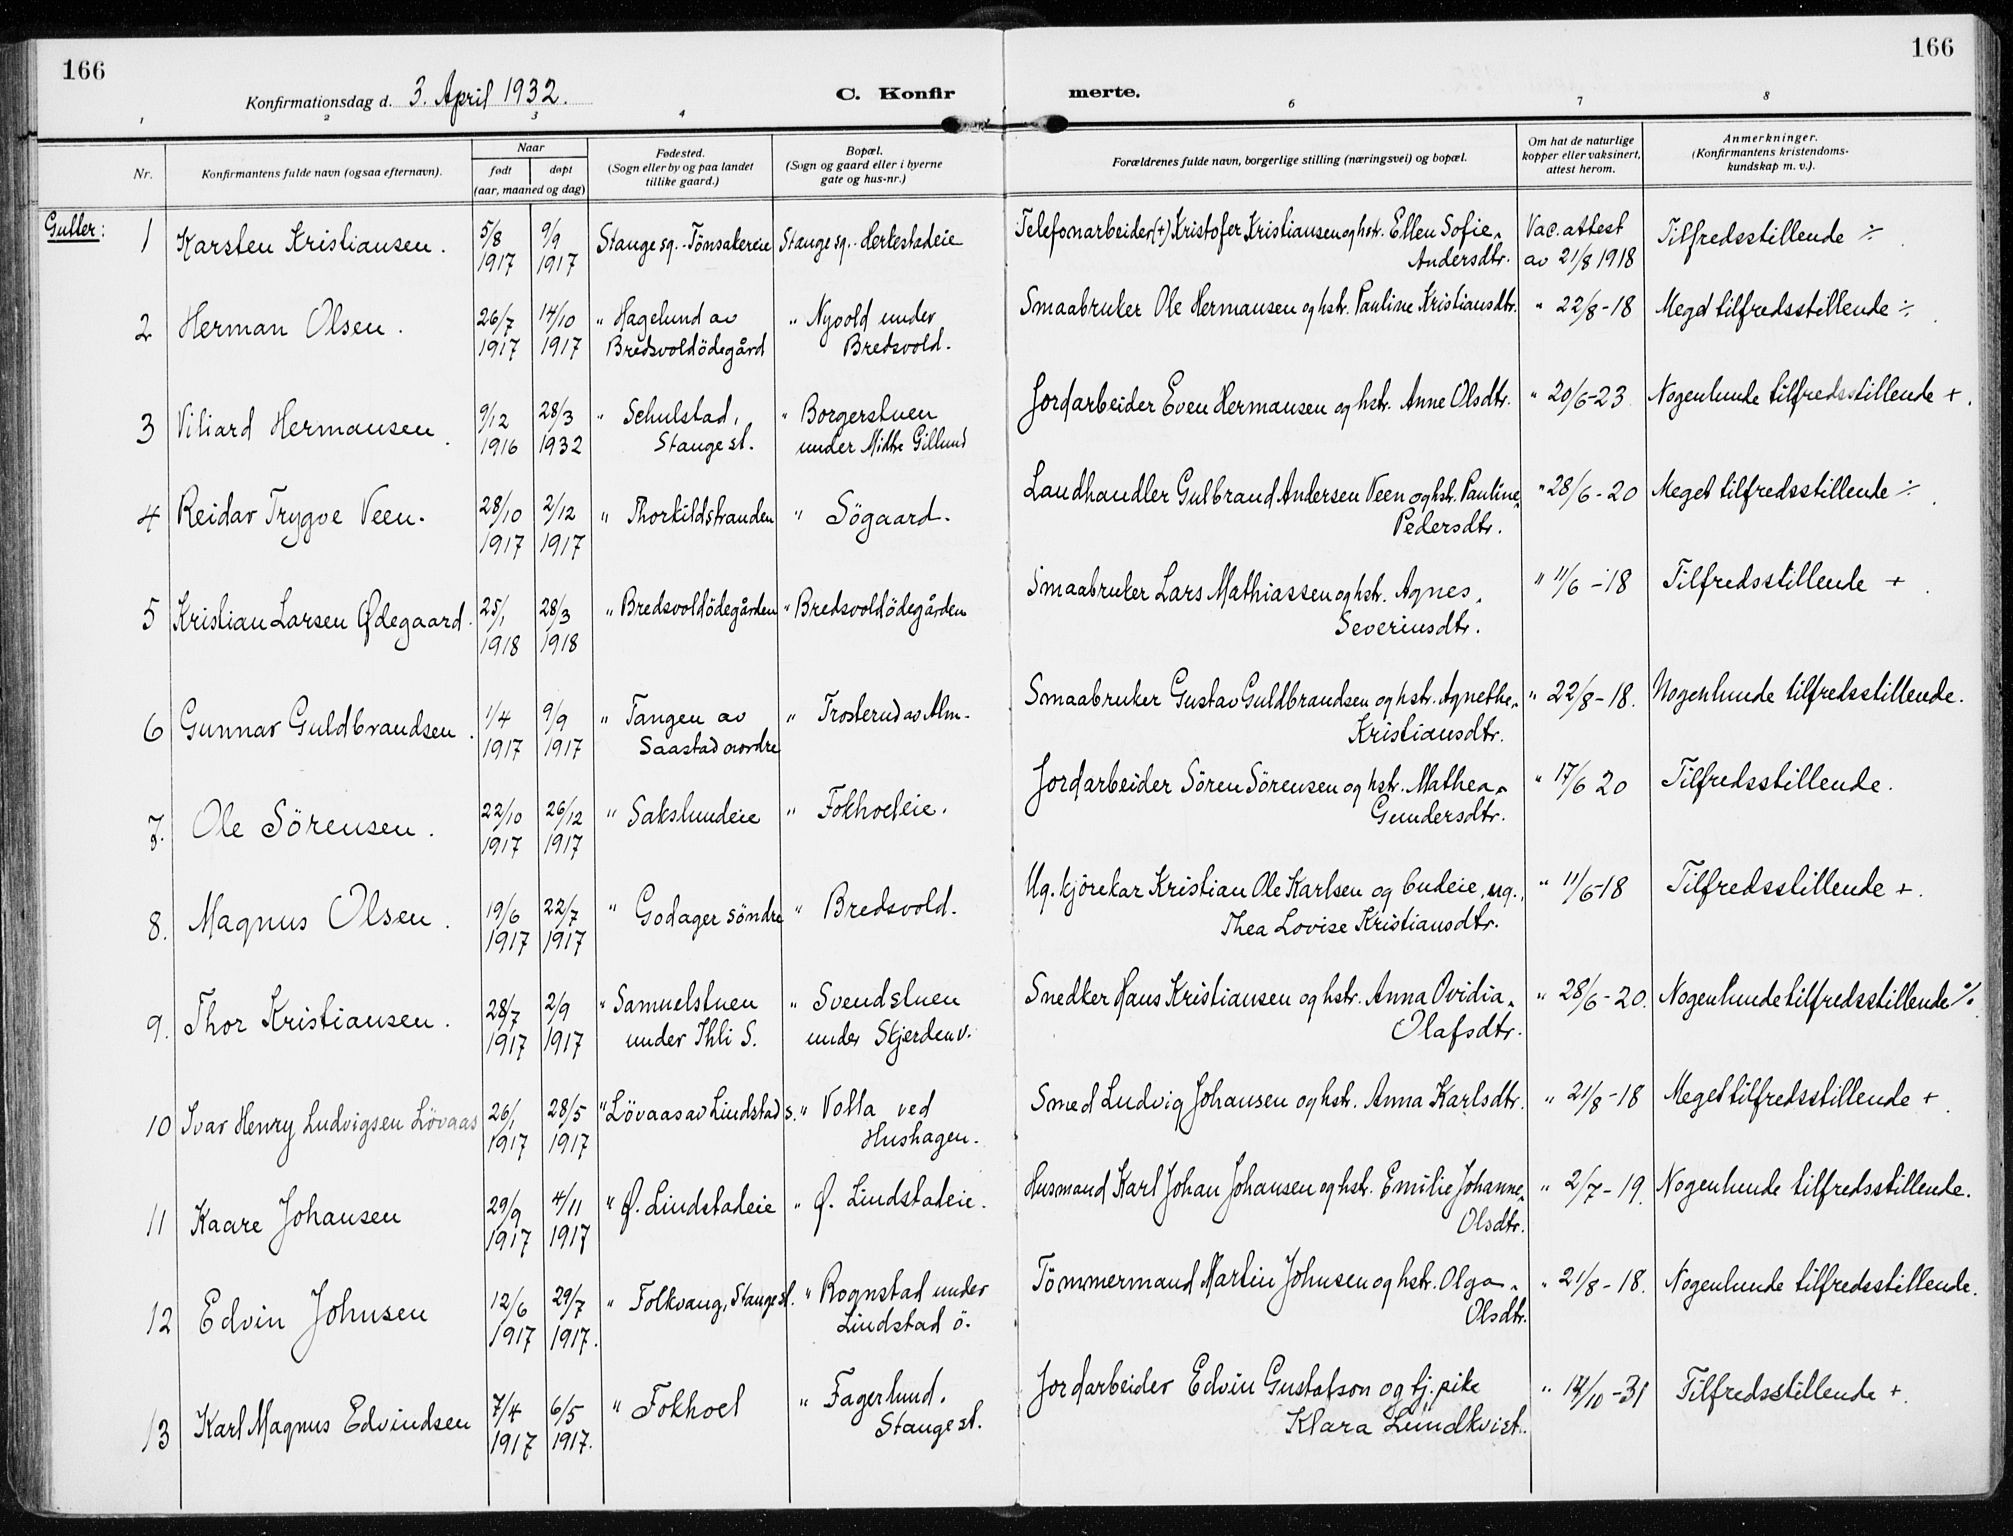 166
166
Konfirmationsdag d. 3. April 1932.
C. Konfir merte.
1 2 3 4 6 7 8
Nr.
Konfirmantens fulde navn (ogsaa efternavn).
Naar
født døpt
(aar, maaned og dag)
Fødested.
(Sogn eller by og paa landet
tillike gaard.)
Bopæl.
(Sogn og gaard eller i byerne
gate og hus-nr.)
Forældrenes fulde navn, borgerlige stilling (næringsvei) og bopæl.
Om hat de naturlige
kopper eller vaksinert,
attest herom.
Anmerkninger.
(Konfirmantens kristendoms-
kundskap m. v.).
Gutter:
1 Karsten Kristiansen. 5/8 1917 9/9 1917 Stange sg. - Tönsakereie Stange sg. - Hertestadeie Telefonarbeider (+) Kristofer Kristiansen og hstr. Ellen Sofie
Andersdtr. Vac. attest
av 21/8 1918 Tilfredsstillende ÷
2 Herman Olsen. 26/7 1917 14/10 1917 " Hagelund av
Bredsvoldödegård " Nyvold under
Bredsvold. Smaabruker Ole Hermansen og hstr. Pauline Kristiansdtr. " 22/8-18 Meget tilfredsstillende ÷
3 Viliard Hermansen. 9/12 1916 28/3 1932 " Schulstad,
Stange st. " Borgerstuen
under Midtre Gillund Jordarbeider Even Hermansen og hstr. Anne Olsdtr. " 20/6-23 Nogenlunde tilfredsstillende +.
4 Reidar Trygve Veen. 28/10 1917 2/12 1917 " Thorkildstranden " Sögaard. Landhandler Gulbrand Andersen Veen og hstr. Pauline
Pedersdtr. " 28/6-20 Meget tilfredsstillende ÷
5 Kristian Larsen Ødegaard. 25/1 1918 28/3 1918 " Bredsvoldödegården " Bredsvoldödegården Smaabruker Lars Mathiassen og hstr. Agnes
Severinsdtr. " 11/6-18 Tilfredsstillende +
6 Gunnar Guldbrandsen. 1/4 1917 9/9 1917 " Tangen av
Saastad nordre " Trosterud av Alm. Smaabruker Gustav Guldbrandsen og hstr. Agnethe
Kristiansdtr. " 22/8-18. Nogenlunde tilfredsstillende.
7. Ole Sörensen. 22/10 1917 26/12 1917 " Sakslundeie " Fokhoeleie. Jordarbeider Sören Sörensen og hstr. Mathea
Gundersdtr. " 17/6 20 Tilfredsstillende.
8. Magnus Olsen. 19/6 1917 22/7 1917 " Godager söndre " Bredsvold. Ug. kjörekar Kristian Ole Karlsen og budeie, ug.
Thea Lovise Kristiansdtr. " 11/6-18 Tilfredsstillende +.
9. Thor Kristiansen. 28/7 1917 2/9 1917 " Samuelstuen
under Ihli S. " Svendstuen
under Skjerden v. Snedker Hans Kristiansen og hstr. Anna Ovidia
Olafsdtr. " 28/6-20. Nogenlunde tilfredsstillende ÷
10 Ivar Henry Ludvigsen Lövaas 26/1 1917 28/5 1917 " Lövaas av Lindstad s. " Volla ved
Hushagen. Smed Ludvig Johansen og hstr. Anna Karlsdtr. " 21/8-18 Meget tilfredsstillende +
11 Kaare Johansen 29/9 1917 4/11 1917 " Ø. Lindstadeie " Ø. Lindstadeie. Husmand Karl Johan Johansen og hstr. Emilie Johanne
Olsdtr. " 2/7-19. Nogenlunde tilfredsstillende.
12 Edvin Johnsen 12/6 1917 29/7 1917. " Folkvang, Stange st. " Rognstad under
Lindstad ö. Tömmermand Martin Johnsen og hstr. Olga
Olsdtr. " 21/8-18. Nogenlunde tilfredsstillende.
13 Karl Magnus Edvindsen 7/4 1917 6/5 1917. " Fokhoel " Fagerlund.
Stange st. Jordarbeider Edvin Gustafson og tj. pike
Klara Lundkvist. " 14/10-31 Tilfredsstillende +.